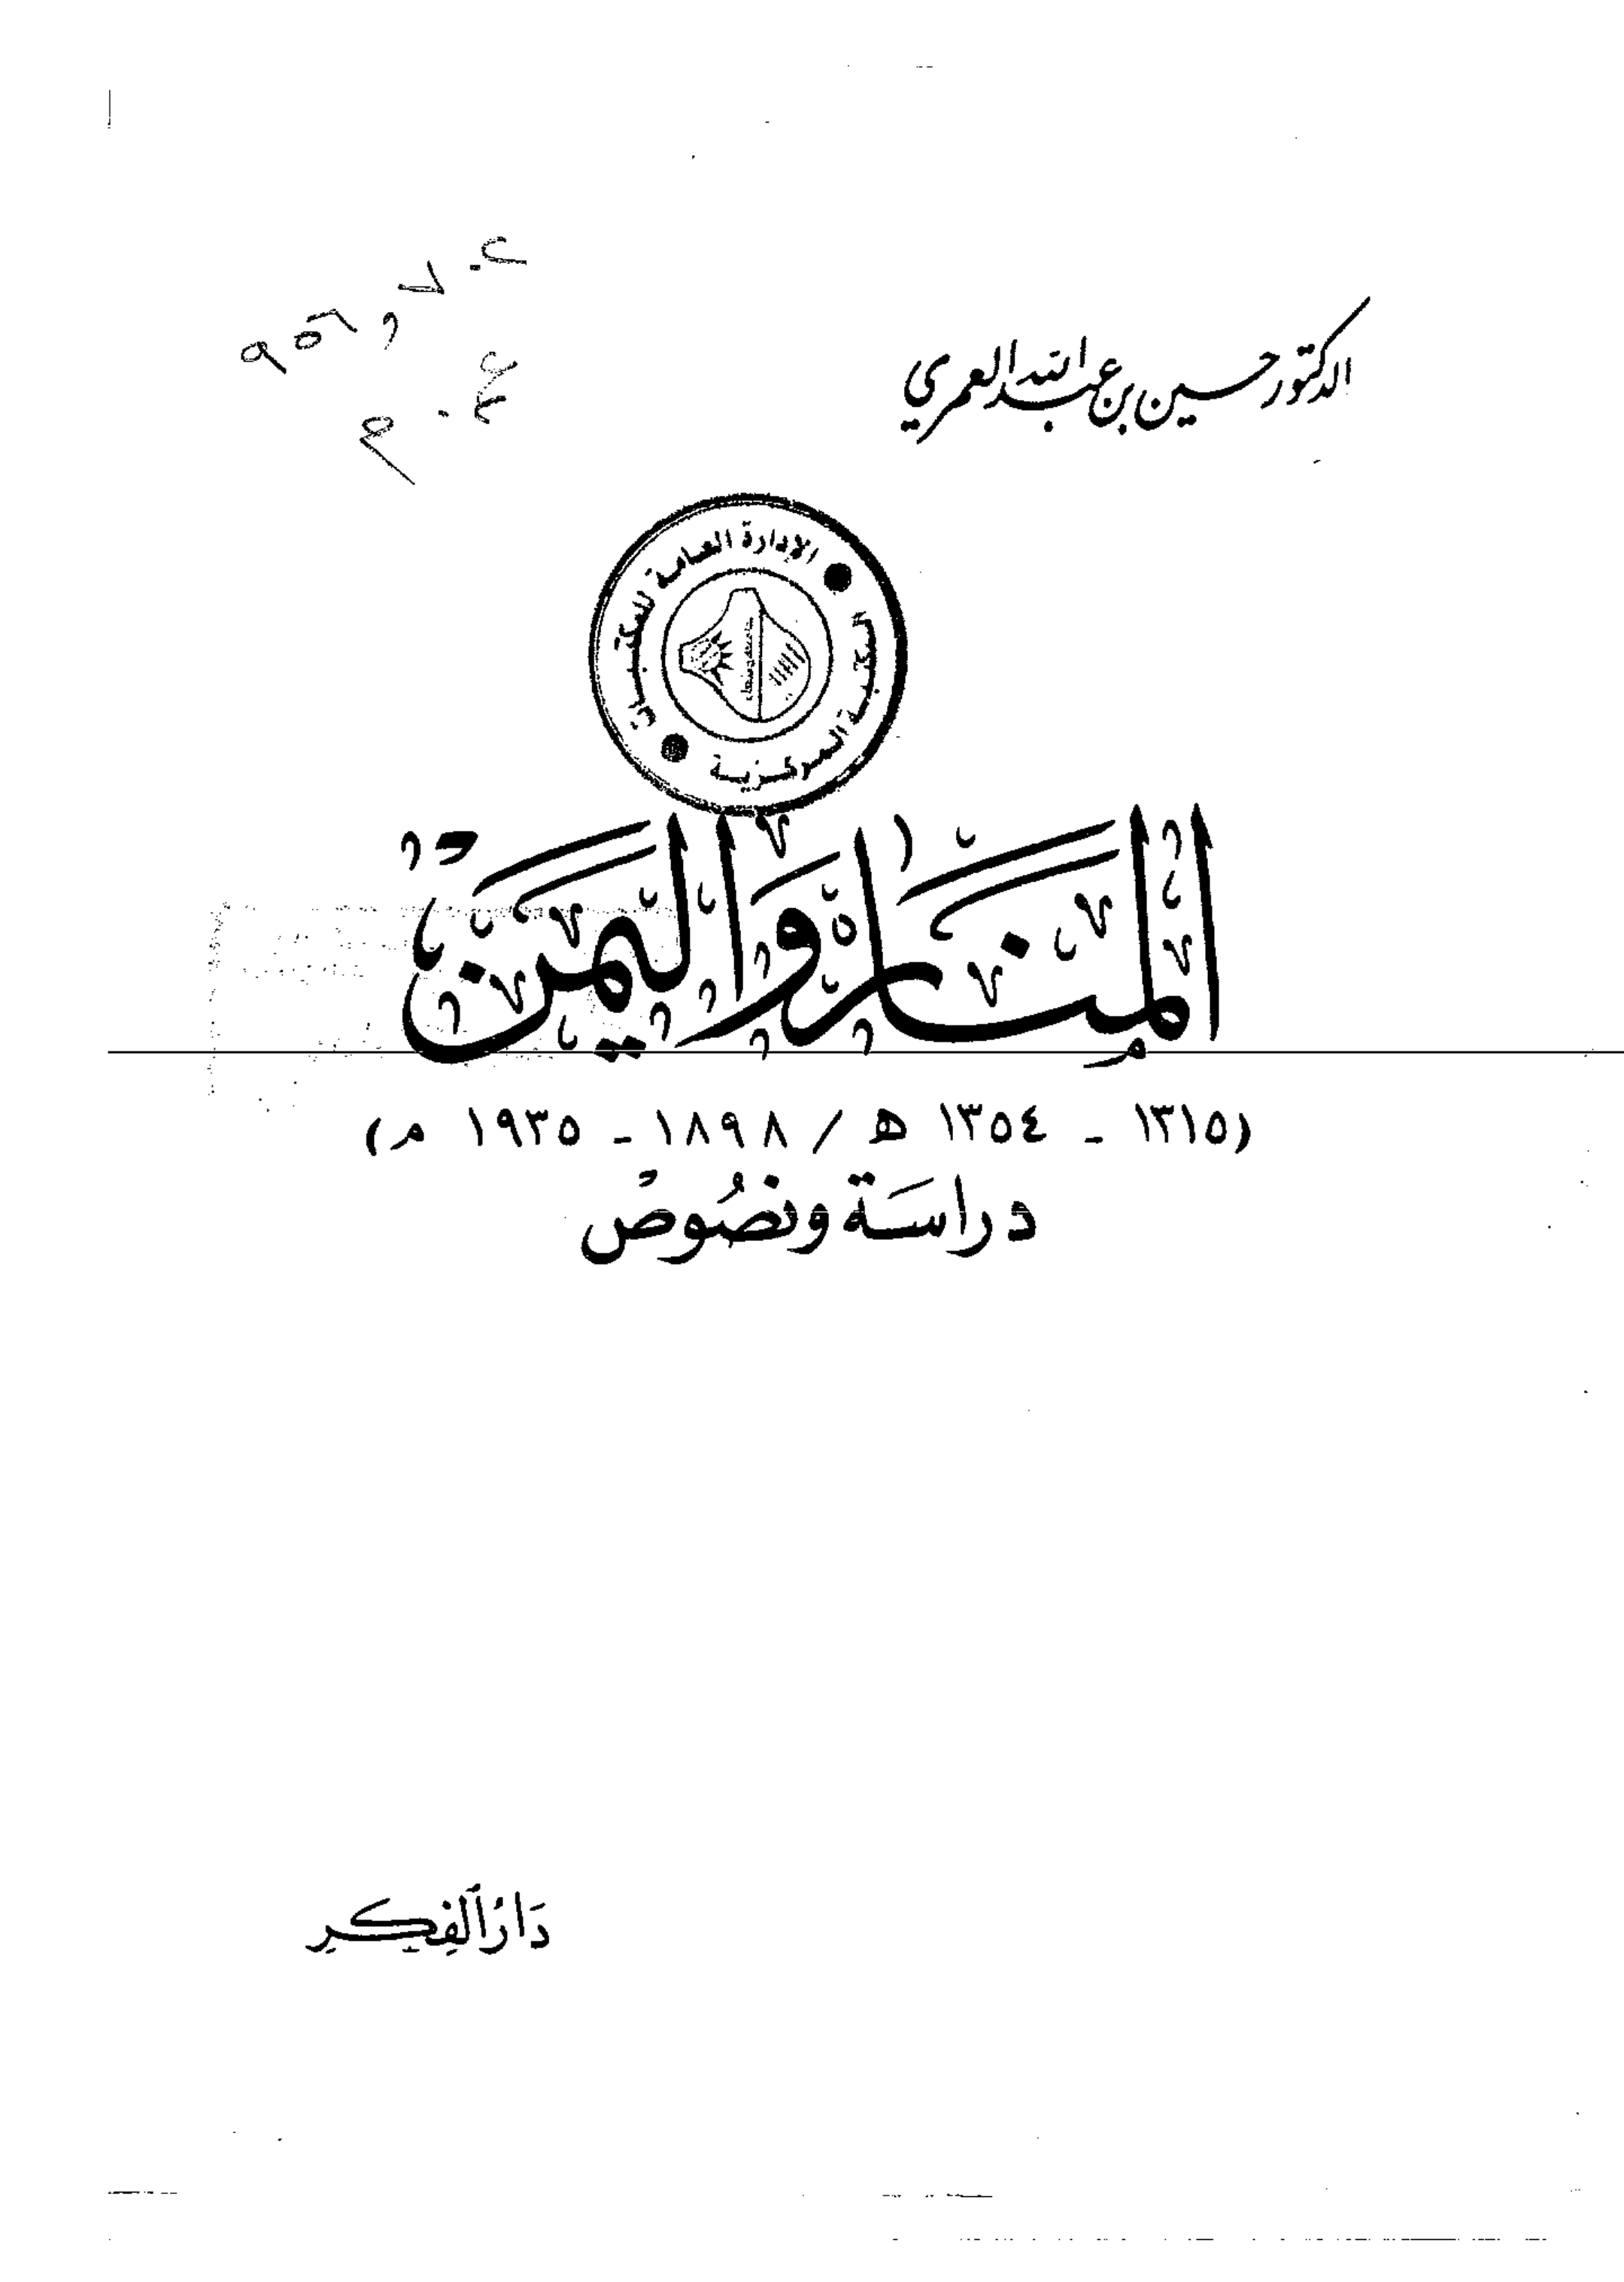 الدكتور حسين بن عبد الله العمري
الإدارة العامة للمكتبات
المكتبة المركزية
المنار واليمن
(١٣١٥ - ١٣٥٤ هـ / ١٨٩٨ - ١٩٣٥ م)
دراسة ونصوص
دار الفكر